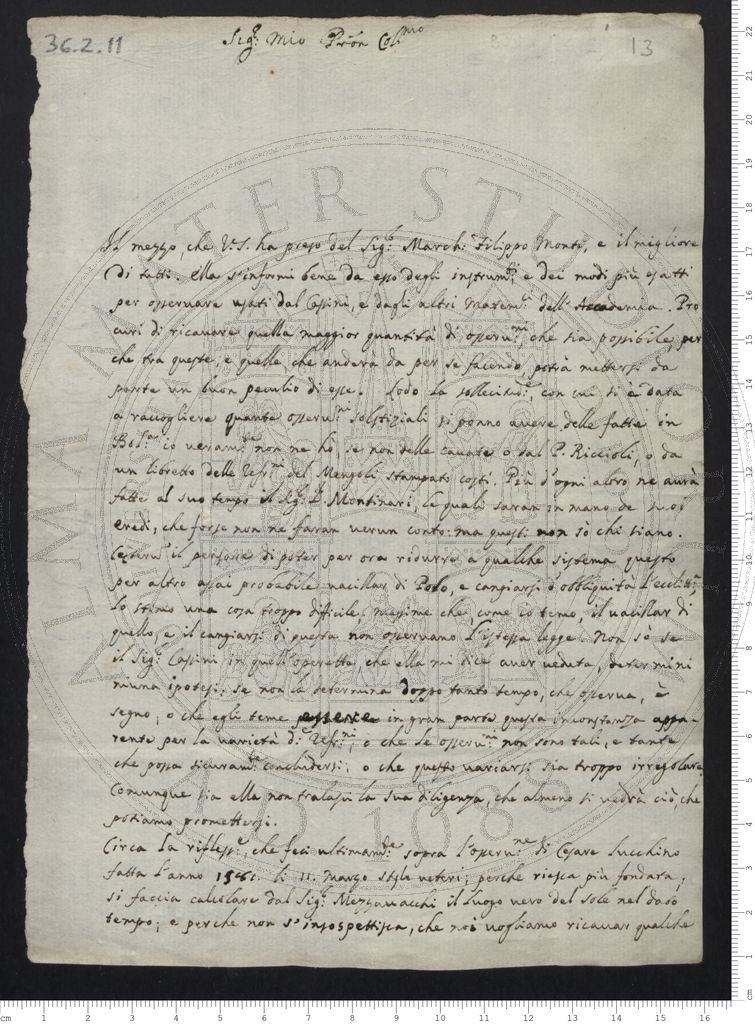 36.2.11
13
Sig.r Mio Pron Col.mo
Il mezzo, che V.S. ha preso del Sig.r March: Filippo Monti, e il migliore
di tutti. Ella s'informi bene da esso degli instrum.ti e dei modi più esatti
per osservare usati dal Cassini, e dagli altri Matem.ci dell'Accademia. Pro
curi di ricavare quella maggior quantità di osseru.ni che sia possibile, per
che tra queste, e quelle, che anderà da per se facendo, potrà mettersi da
parte un buon peculio di esse. Lodo la sollecitud.e con cui si è data
a raccogliere quante osseru.ni solstiziali si ponno avere delle fatte in
Bol.a io veram.te non ne ho, se non delle cavate o dal P. Riccioli, o da
un libretto delle Refr.ni del Mengoli stampato costì. Più d'ogni altro ne aurà
fatte al suo tempo il Sig.r D. Montinari, le quali saran in mano de suoi
eredi, che forse non ne faran verun conto: ma questi non sò chi siano.
Ceteru il pensare di poter per ora ridurre a qualche sistema questo
per altro assai probabile vacillar di Polo, e cangiarsi d'obbliquità l'eclitt.a
lo stimo una cosa troppo difficile, massime che, come io temo, il vacillar di
quello, e il cangiarsi di questa non osservano l'istessa legge. Non sò se
il Sig.r Cassini in quell'operetta, che ella mi dice aver veduta, determini
niuna ipotesi; se non la determina doppo tanto tempo, che osserva, è
segno, o che egli teme essere in gran parte questa inconstanza appa-
rente per la varietà d. Refr.ni, o che le osseru.ni non sono tali, e tante
che possa sicuram.te concludersi, o che questo variarsi sia troppo irregolare.
Comunque sia ella non tralasci la sua diligenza, che almeno si vedrà ciò, che
potiamo prometterci.
Circa la rifless.e, che feci ultimam.te sopra l'osseru.ne di Cesare Lucchino
fatta l'anno li 11. marzo stylo veteri; perche riesca più fondata,
si faccia calcolare dal Sig.r Mezzavacchi il luogo vero del sole nel dato
tempo; e perche non s'insospettisca, che noi vogliamo ricavar qualche